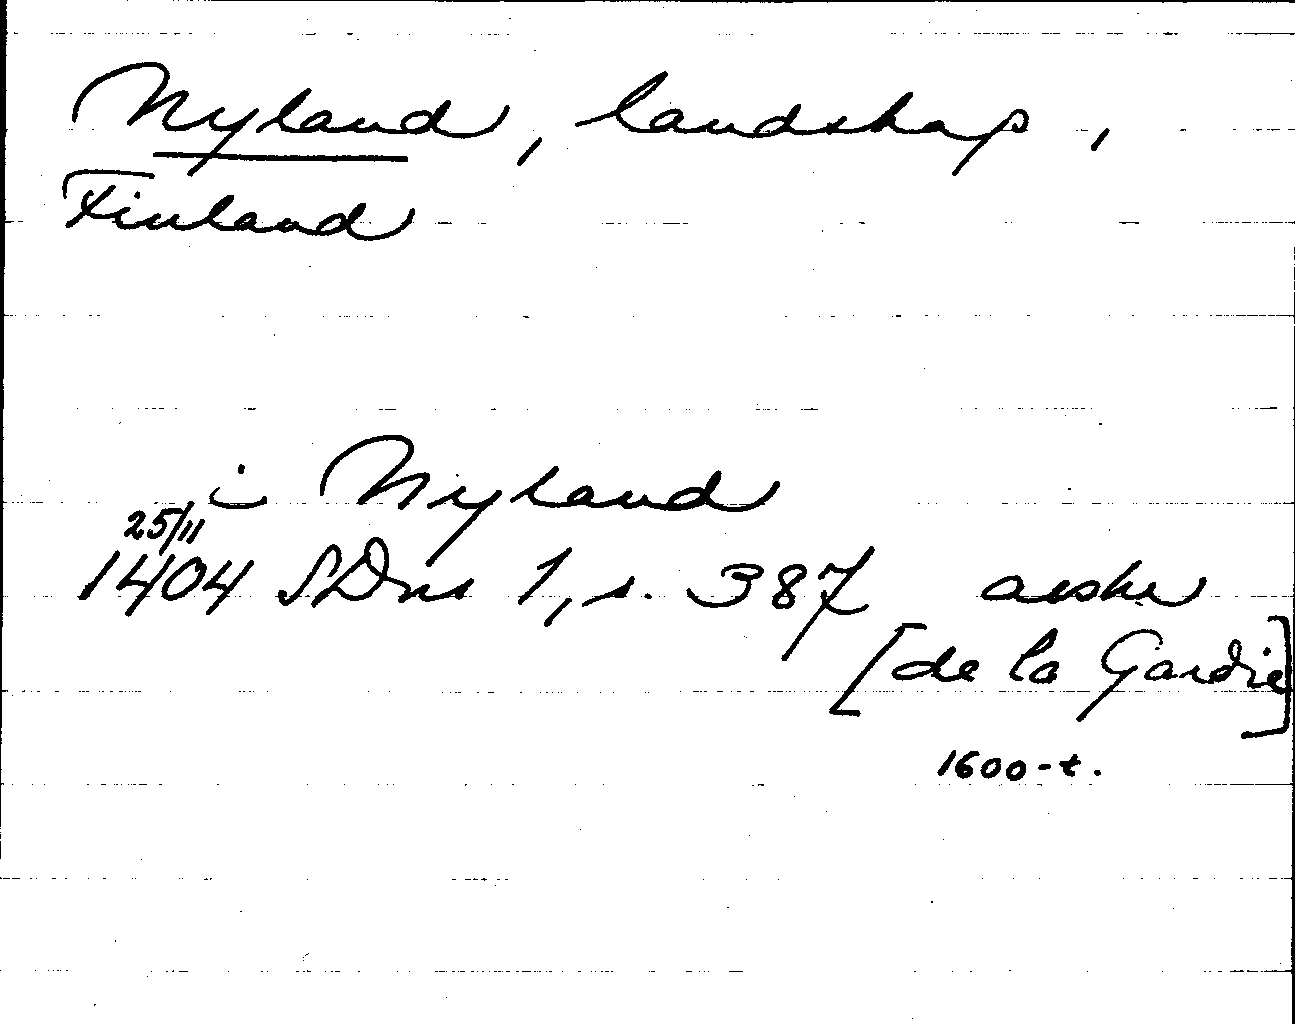 Nyland, landskap,
Finland
i Nyland
25/11
1404 SDns 1, s. 387 avskr
[de la Gardie]
1600-t.